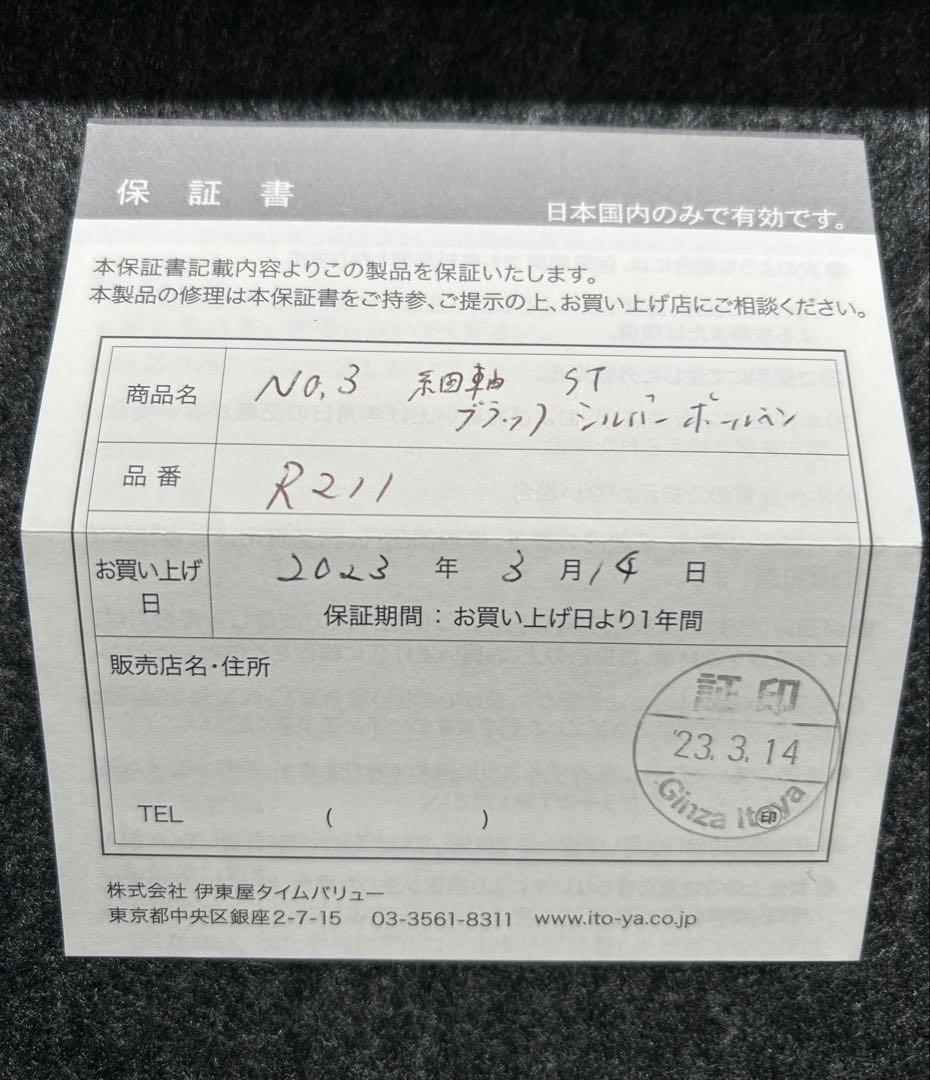 保証書
日本国内のみで有効です。
本保証書記載内容よりこの製品を保証いたします。
本製品の修理は本保証書をご持参、ご提示の上、お買い上げ店にご相談ください。
商品名 NO.3 細軸 ST
ブラック シルバー ボールペン
品番 R211
お買い上げ日 2023 年 3 月 14 日
保証期間：お買い上げ日より1年間
販売店名・住所
証印
'23.3.14
Ginza Itoya
印
TEL ( )
株式会社 伊東屋タイムバリュー
東京都中央区銀座2-7-15 03-3561-8311 www.ito-ya.co.jp